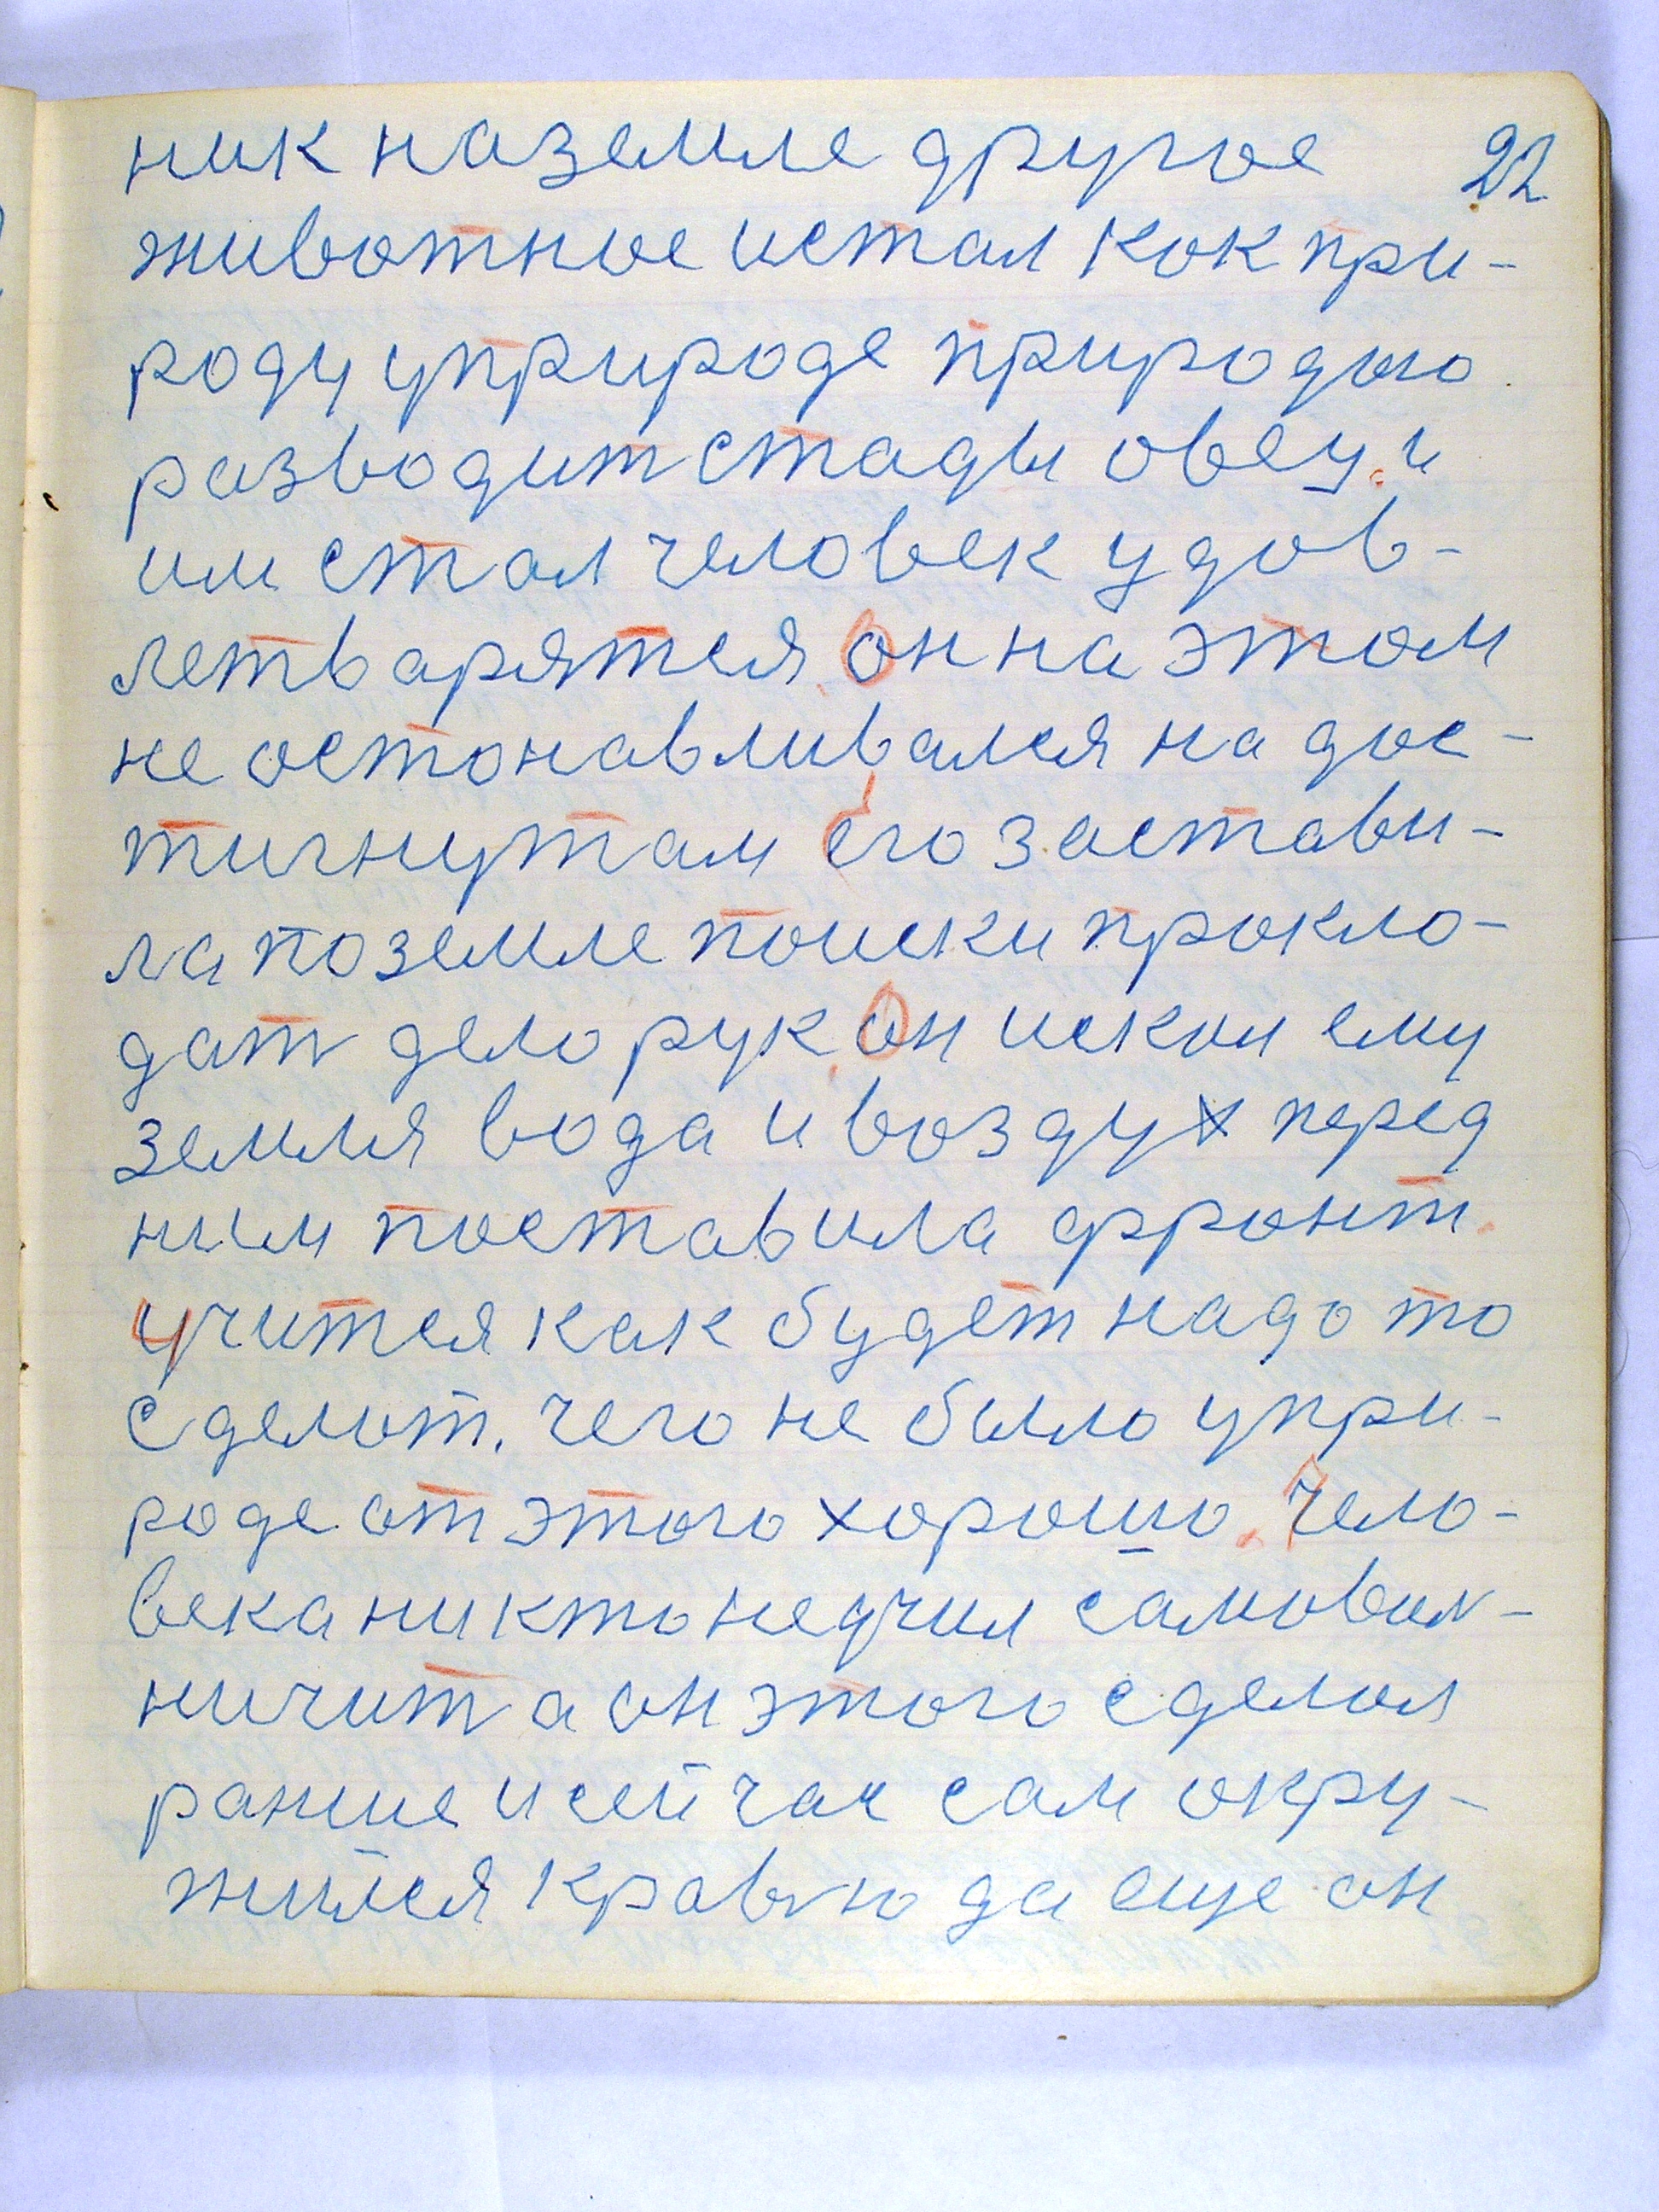 ник на земле другое 22
животное и стал как при-
роду у природе природою
разводит стады овец. и
им стал человек удов-
летварятся. Он на этом
не останавливался на дос-
тигнутам Его застави-
ла по земле поиски прокло-
дат дело рук. Он искал ему
земля вода и воздух перед
ним поставила фронт.
учится как будет надо то
сделот. чего не было у при-
роде от этого хорошо. Чело-
века никто не учил самовол-
ничит а он этого сделал
ранше и сейчас сам окру-
жился кравью да еще он